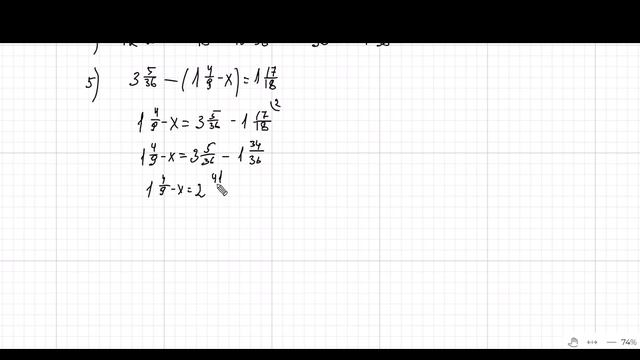 5) 3 5/36 − (1 4/9 − x) = 1 17/18
1 4/9 − x = 3 5/36 − 1 17/18 (2
1 4/9 − x = 3 5/36 − 1 34/36
1 4/9 − x = 2 41
74%